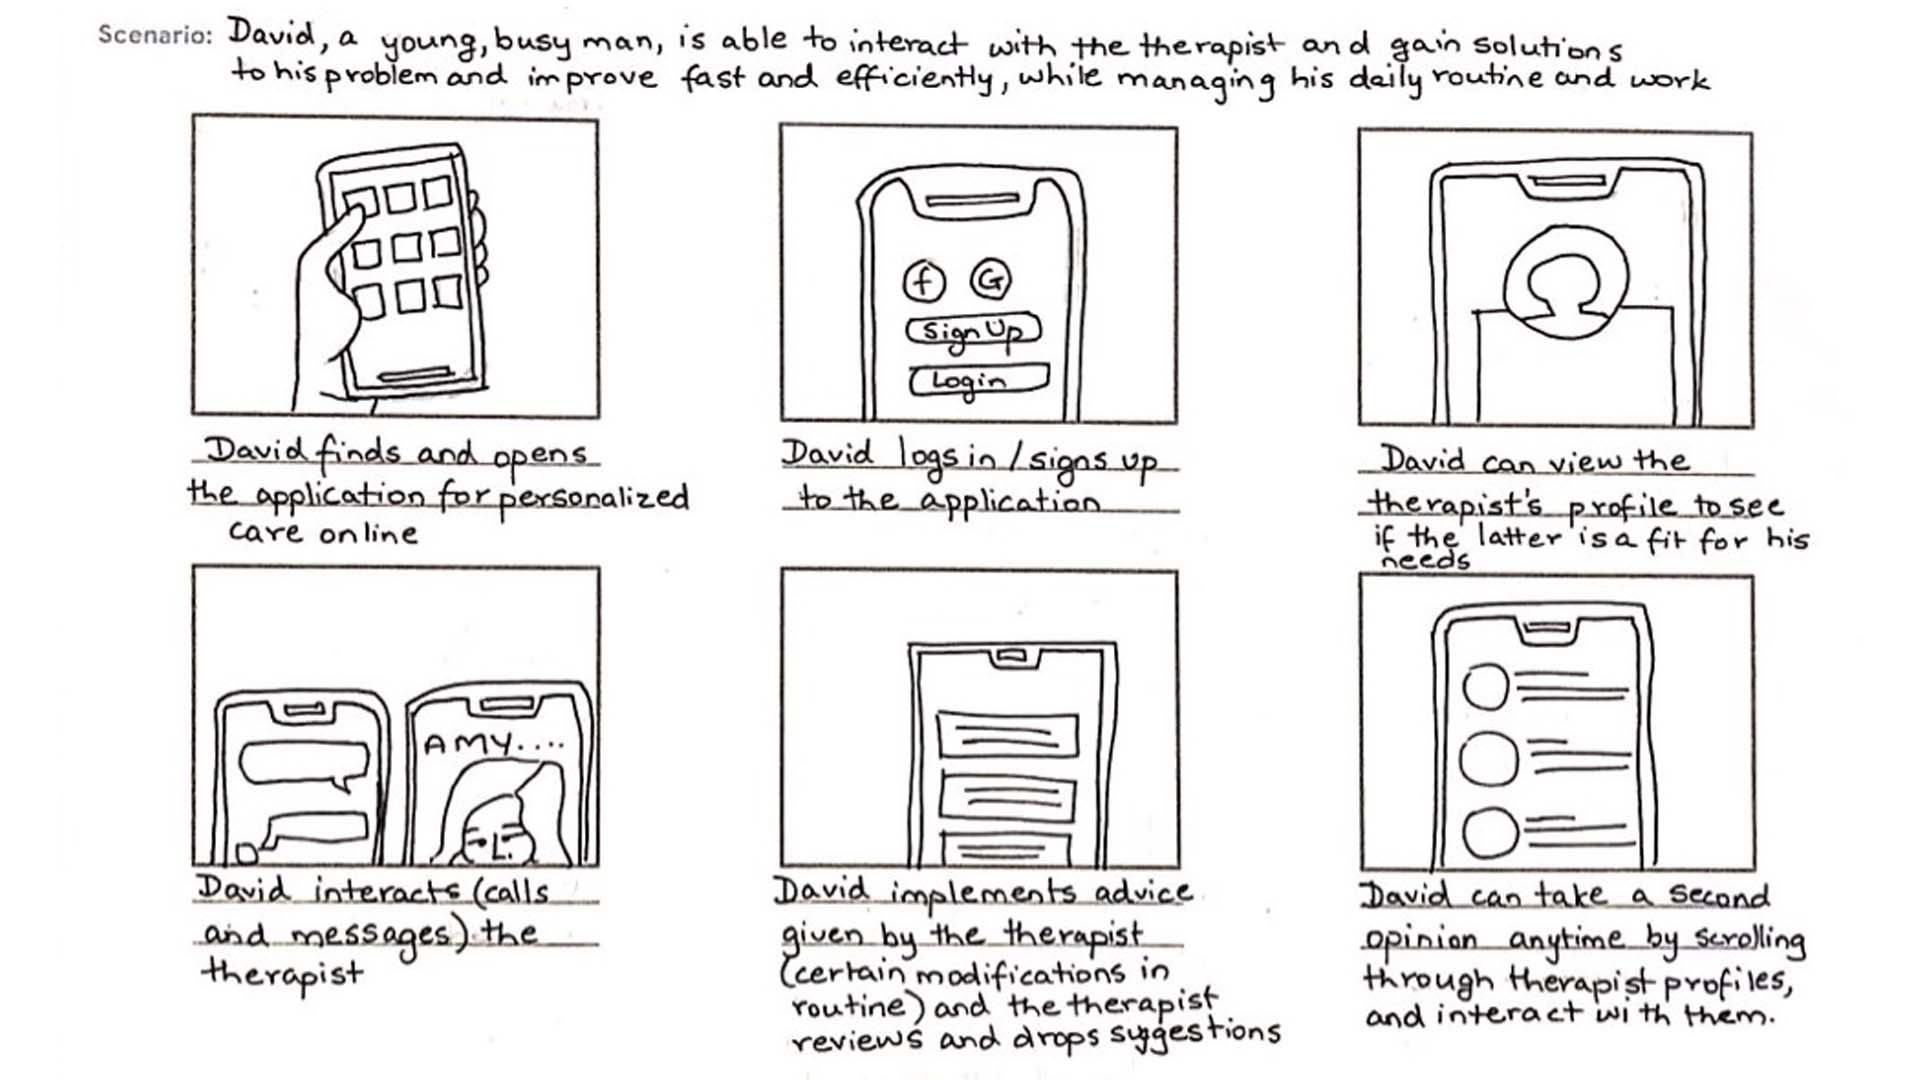 Scenario: David, a young, busy man, is able to interact with the therapist and gain solutions
to his problem and improve fast and efficiently, while managing his daily routine and work
f G
Sign Up
Login
David finds and opens
the application for personalized
care online
David logs in / signs up
to the application
David can view the
therapist's profile to see
if the latter is a fit for his
needs
AMY....
David interacts (calls
and messages) the
therapist
David implements advice
given by the therapist
(certain modifications in
routine) and the therapist
reviews and drops suggestions
David can take a second
opinion anytime by scrolling
through therapist profiles,
and interact with them.